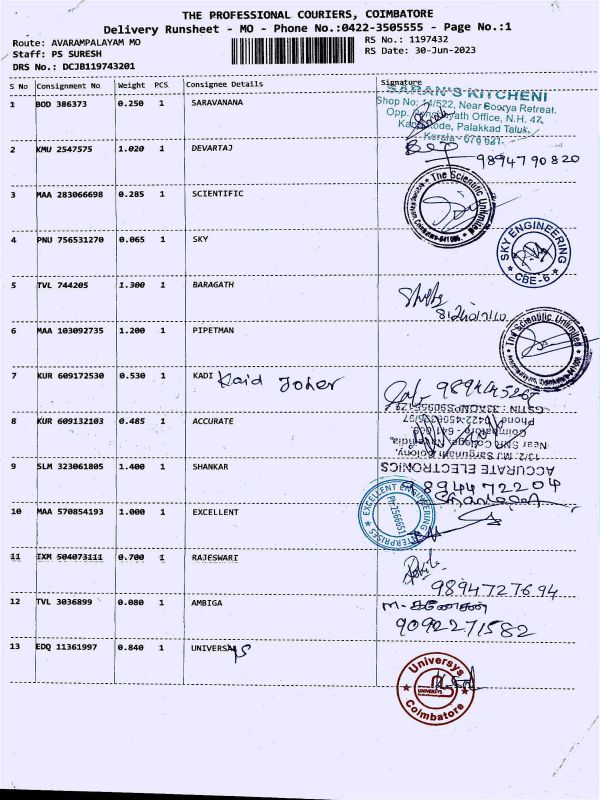 THE PROFESSIONAL COURIERS, COIMBATORE
Delivery Runsheet - MO - Phone No.:0422-3505555 - Page No.:1
Route: AVARAMPALAYAM MO
RS No.: 1197432
Staff: PS SURESH
RS Date: 30-Jun-2023
DRS No.: DCJB119743201
S No Consignment No Weight PCS Consignee Details Signature
1 BOD 386373 0.250 1 SARAVANA
SARAN'S KITCHEN
Shop No: 14/522, Near Soorya Retreat,
Office, N.H. 47,
Palakkad Taluk,
Kerala - 678 621
2 KMU 2547575 1.020 1 DEVARTAJ
9894790820
3 MAA 283066698 0.285 1 SCIENTIFIC
The Scientific Unlimited
4 PNU 756531270 0.065 1 SKY
SKY ENGINEERING
CBE-6
5 TVL 744205 1.300 1 BARAGATH
6 MAA 103092735 1.200 1 PIPETMAN
The Scientific Unlimited
7 KUR 609172530 0.530 1 KADI Kaid Joher
8 KUR 609132103 0.485 1 ACCURATE
ACCURATE ELECTRONICS
9 SLM 323061805 1.400 1 SHANKAR
9894472204
10 MAA 570854193 1.000 1 EXCELLENT
EXCELLENT ENGINEERING ENTERPRISES
11 IXM 504073111 0.700 1 RAJESWARI
9894727694
12 TVL 3036899 0.080 1 AMBIGA
M-கணேசன்
9092271582
13 EDQ 11361997 0.840 1 UNIVERSYS
Universys
UNIVERSYS
Coimbatore